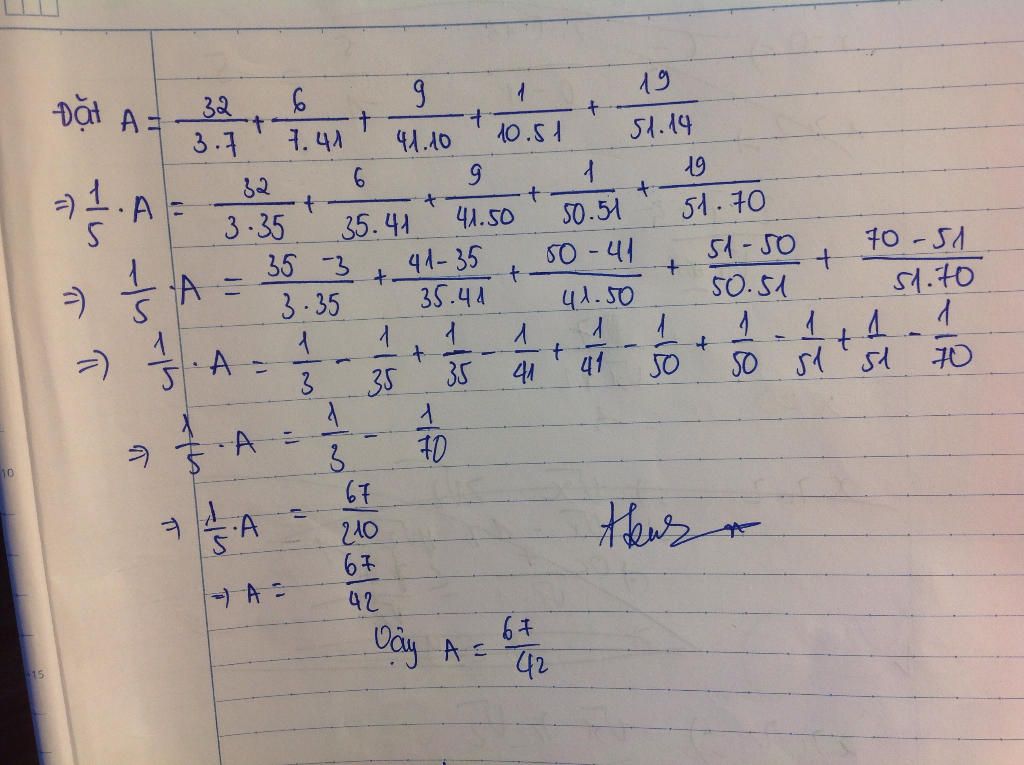 Đặt A = 32/3.7 + 6/7.41 + 9/41.10 + 1/10.51 + 19/51.14
⇒ 1/5 . A = 32/3.35 + 6/35.41 + 9/41.50 + 1/50.51 + 19/51.70
⇒ 1/5 . A = 35 - 3/3.35 + 41 - 35/35.41 + 50 - 41/41.50 + 51 - 50/50.51 + 70 - 51/51.70
⇒ 1/5 . A = 1/3 - 1/35 + 1/35 - 1/41 + 1/41 - 1/50 + 1/50 - 1/51 + 1/51 - 1/70
⇒ 1/5 . A = 1/3 - 1/70
⇒ 1/5 . A = 67/210
⇒ A = 67/42
Vậy A = 67/42
10
15